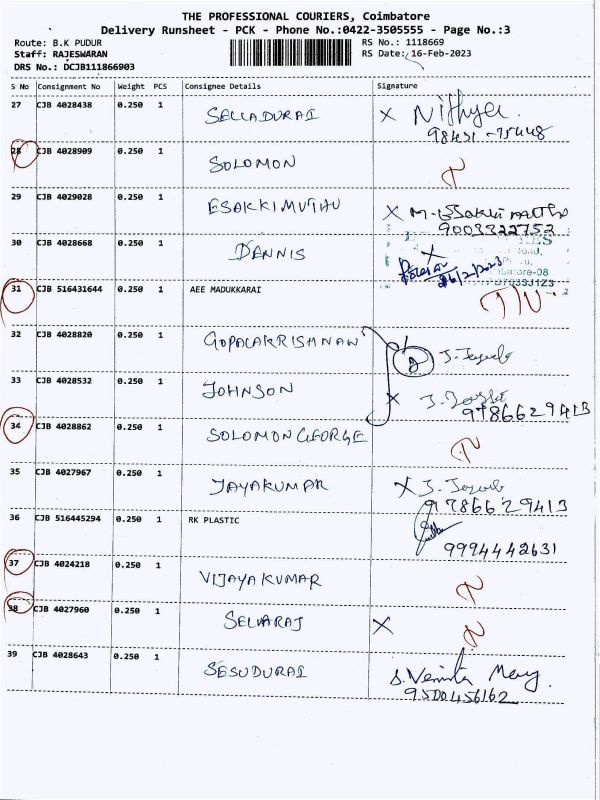 THE PROFESSIONAL COURIERS, Coimbatore
Delivery Runsheet - PCK - Phone No.:0422-3505555 - Page No.:3
Route: B.K PUDUR
RS No.: 1118669
Staff: RAJESWARAN
RS Date: 16-Feb-2023
DRS No.: DCJB111866903
S No Consignment No Weight PCS Consignee Details Signature
27 CJB 4028438 0.250 1 SELLADURAI X Nithya.
98431-75448
28 CJB 4028909 0.250 1 SOLOMON
29 CJB 4029028 0.250 1 ESAKKIMUTHU X M.
9003322752
30 CJB 4028668 0.250 1 DANNIS X
16/2/2023
31 CJB 516431644 0.250 1 AEE MADUKKARAI
32 CJB 4028820 0.250 1 GOPALAKRISHNAN
33 CJB 4028532 0.250 1 JOHNSON X
9786629413
34 CJB 4028862 0.250 1 SOLOMON GEORGE
35 CJB 4027967 0.250 1 JAYAKUMAR X
9786629413
36 CJB 516445294 0.250 1 RK PLASTIC
9994442631
37 CJB 4024218 0.250 1 VIJAYAKUMAR
38 CJB 4027960 0.250 1 SELVARAJ X
39 CJB 4028643 0.250 1 SESUDURAI S. Mary.
9500456162